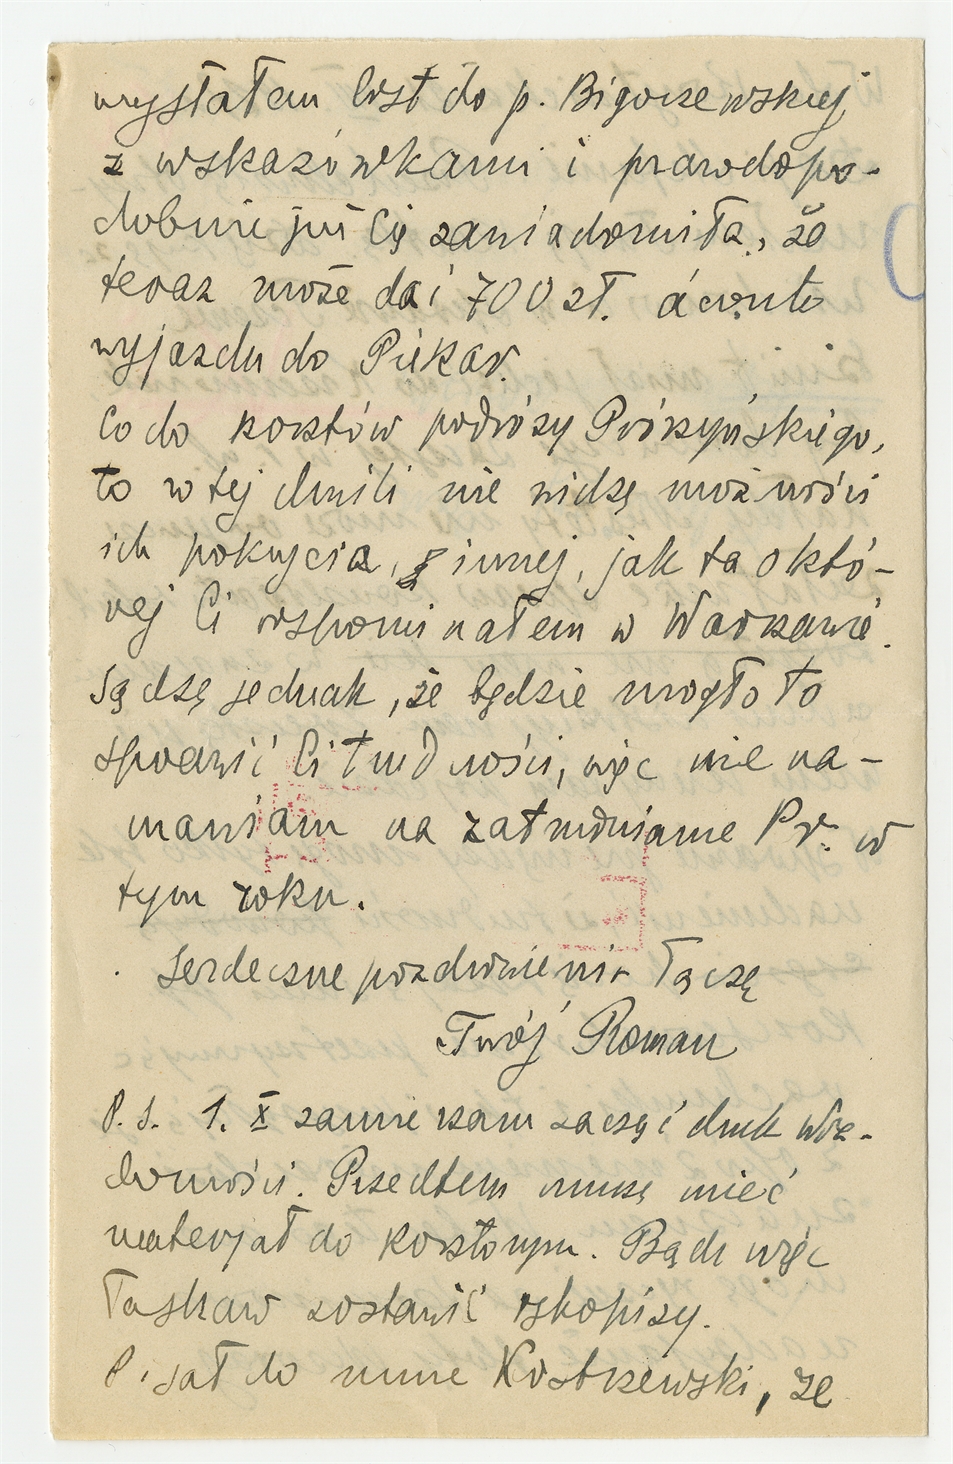 wysłałem list do p. Bigoszewskiej
z wskazówkami i prawdopo-
dobnie już Cię zawiadomiła, że
teraz może dać 700 zł. á conto
wyjazdu do Piekar.
Co do kosztów podróży Prószyńskiego,
to w tej chwili nie widzę możności
ich pokrycia, innej, jak ta o któ-
rej Ci wspominałem w Warszawie.
Sądzę jednak, że będzie mogło to
sprawić Ci trudności, więc nie na-
mawiam na zatrudnianie Pr. w
tym roku.
Serdeczne pozdrowienia łączę
Twój Roman
P. S. 1. X zamierzam zacząć druk Wia-
domości. Przedtem muszę mieć
materjał do kosztorysu. Bądź więc
łaskaw zostawić rękopisy.
Pisał do mnie Kostrzewski, że